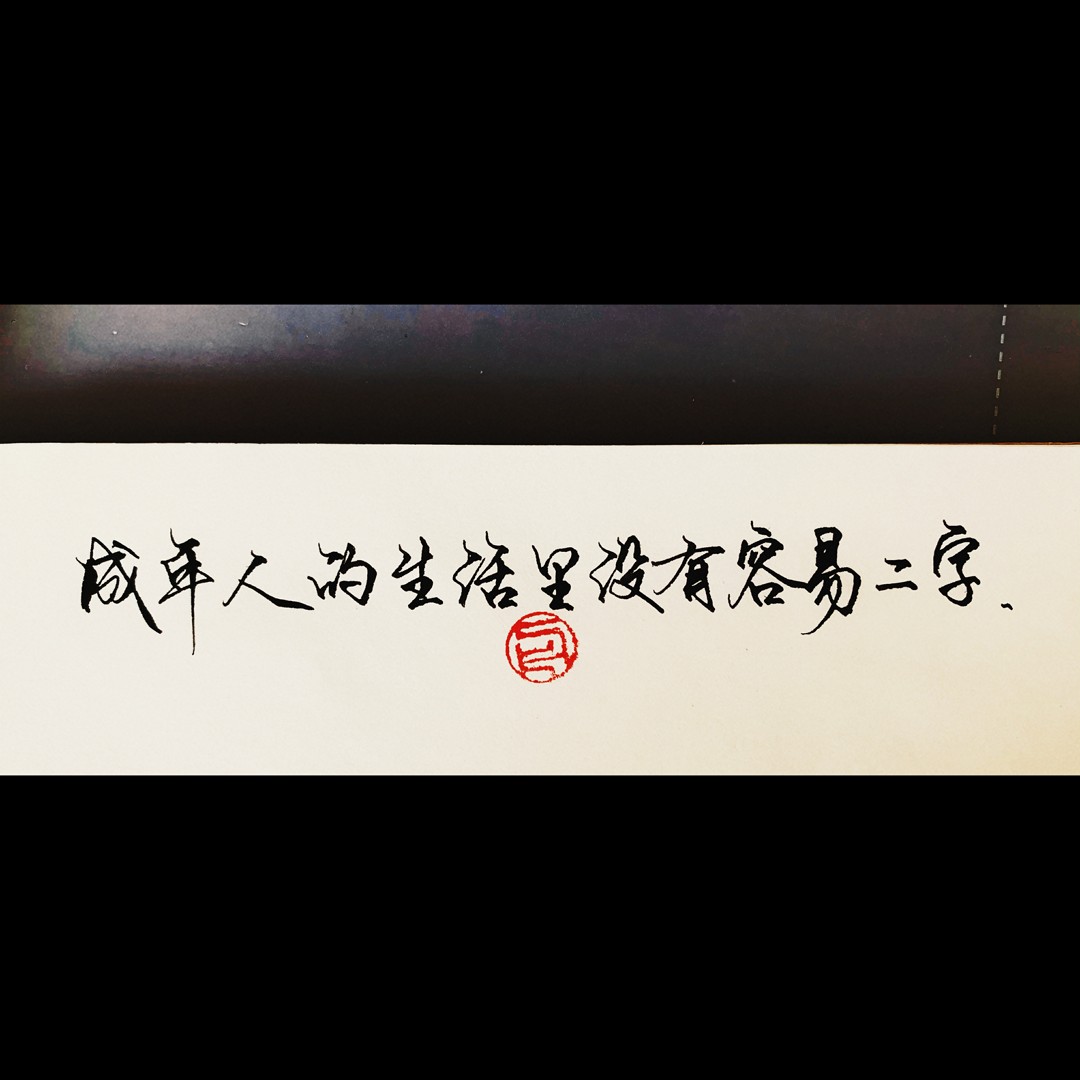 成年人的生活里没有容易二字、